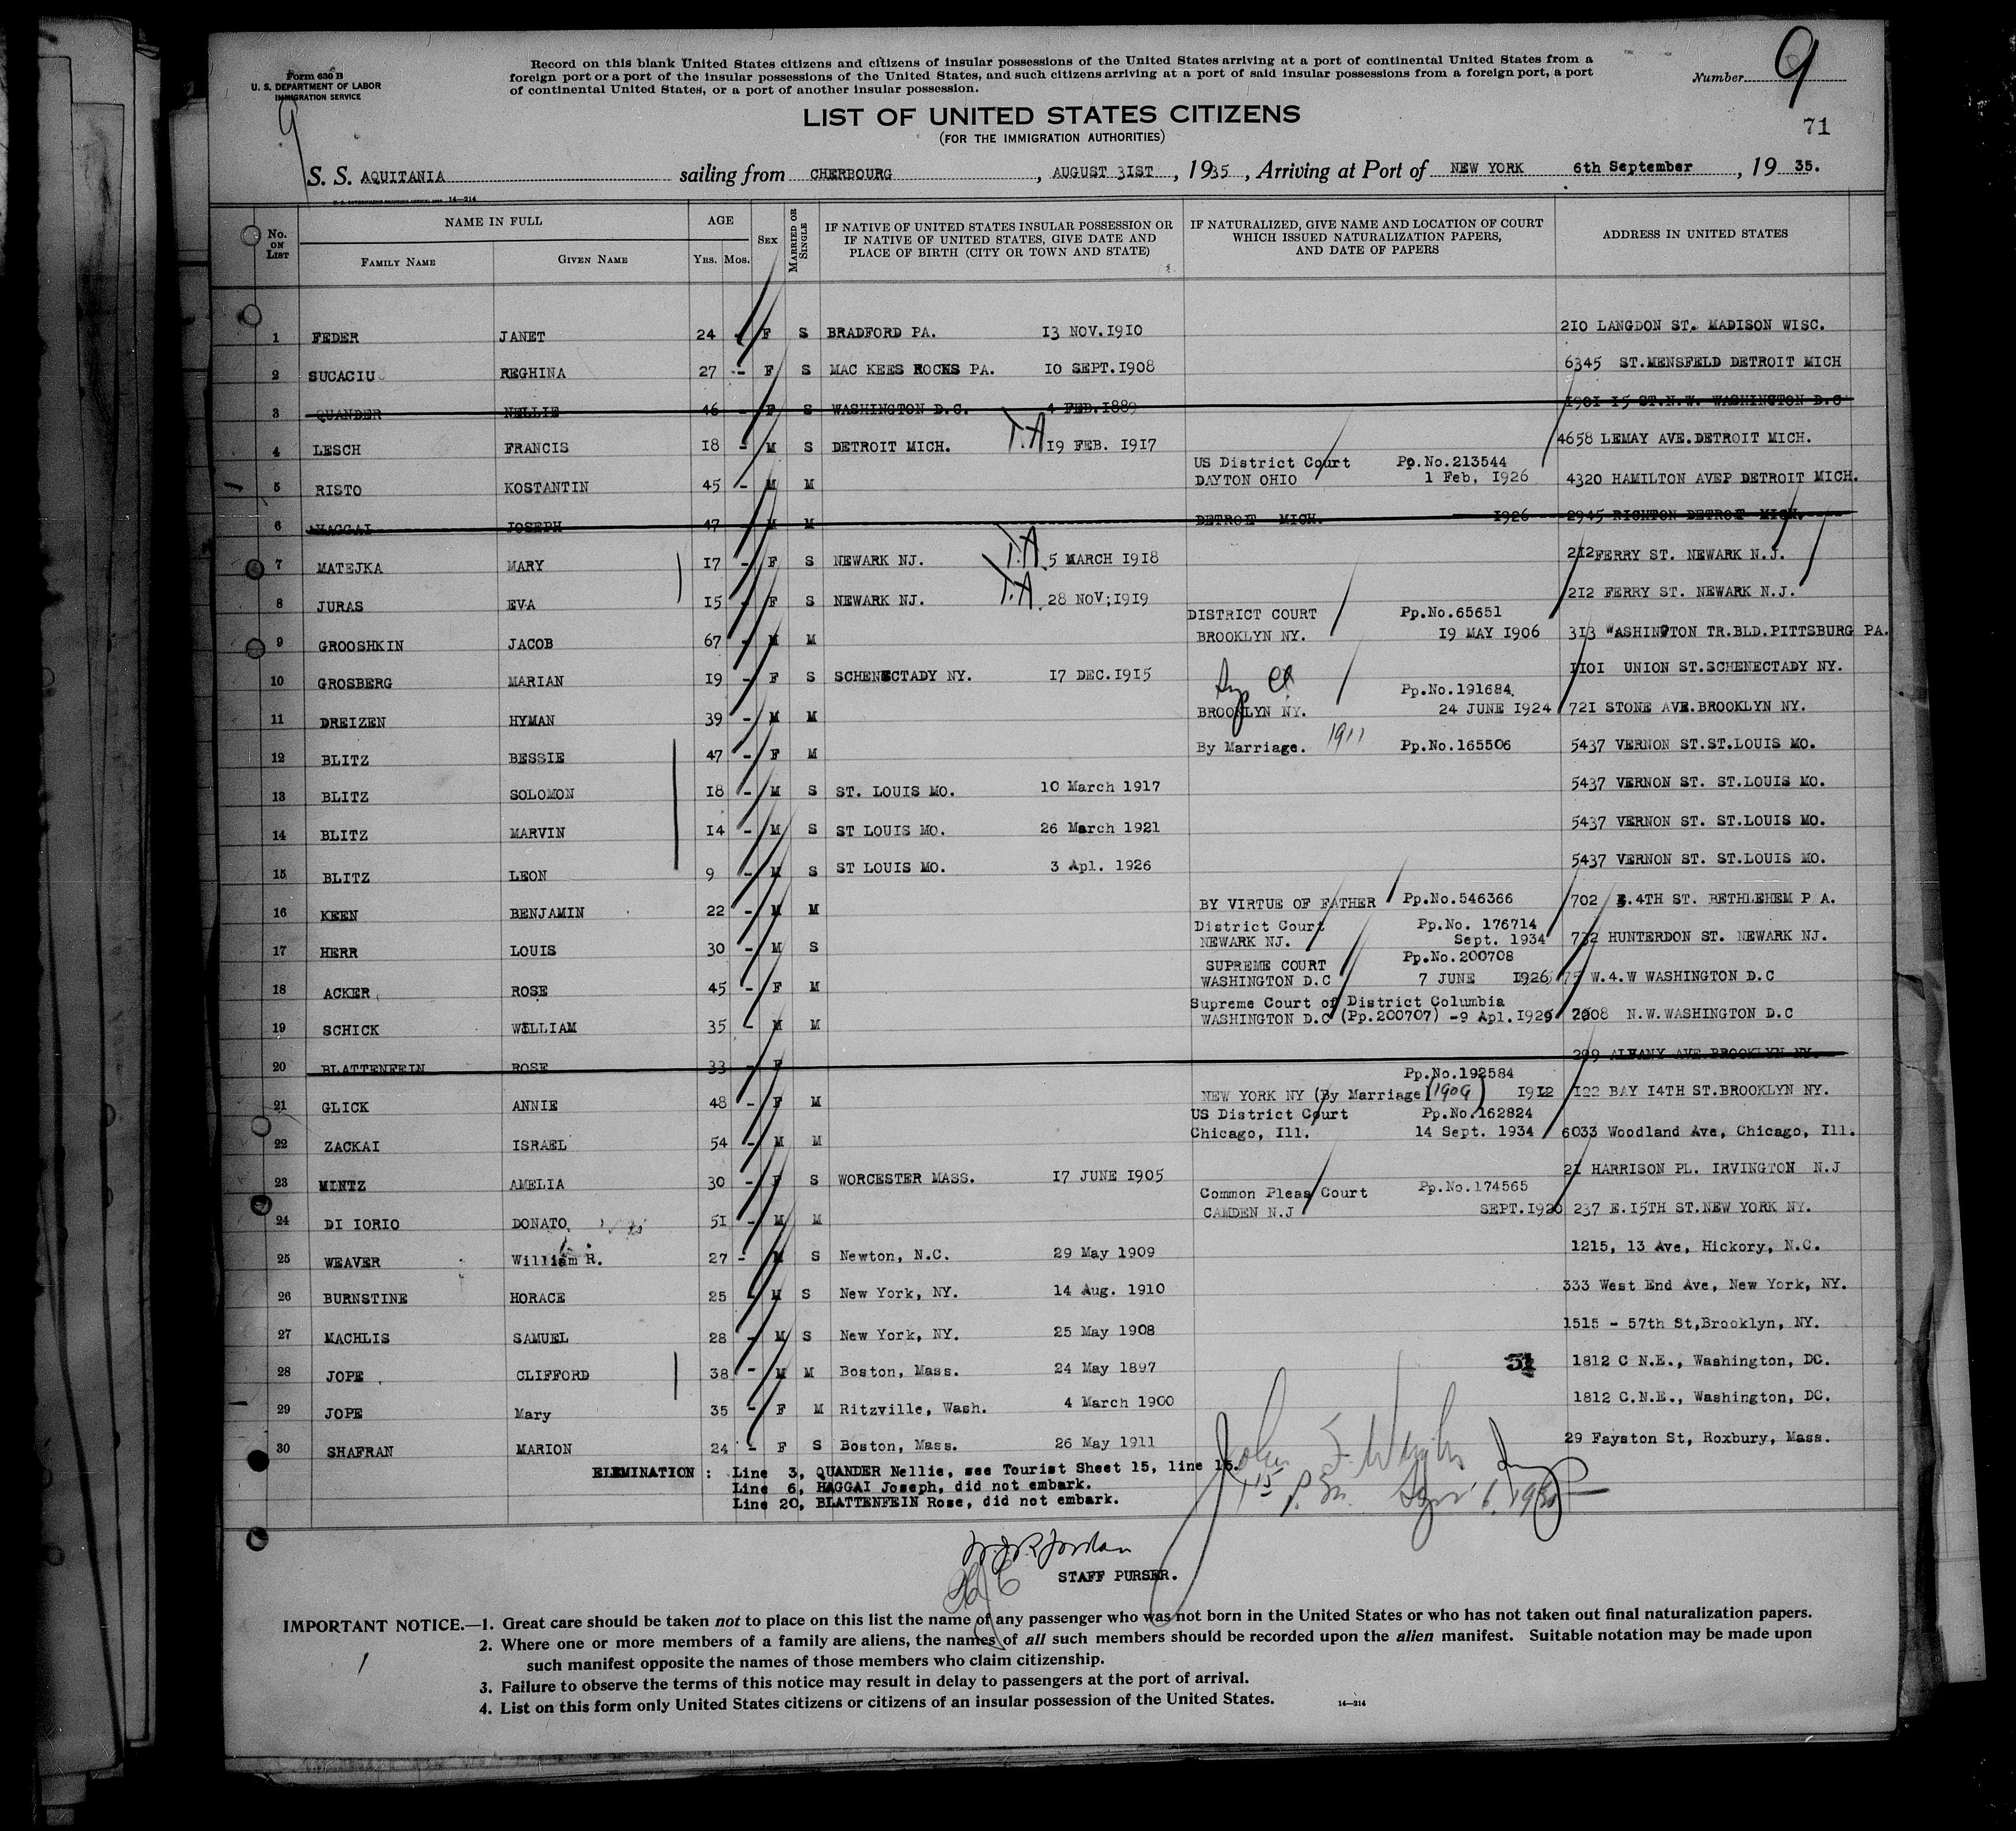 Form 630 B
U. S. DEPARTMENT OF LABOR
IMMIGRATION SERVICE
9
Record on this blank United States citizens and citizens of insular possessions of the United States arriving at a port of continental United States from a
foreign port or a port of the insular possessions of the United States, and such citizens arriving at a port of said insular possessions from a foreign port, a port
of continental United States, or a port of another insular possession.
Number 9
71
LIST OF UNITED STATES CITIZENS
(FOR THE IMMIGRATION AUTHORITIES)
S. S. AQUITANIA sailing from CHERBOURG, AUGUST 31ST, 1935, Arriving at Port of NEW YORK 6th September, 19 35.
14—214
No. ON LIST
NAME IN FULL
FAMILY NAME GIVEN NAME
AGE
YRS. MOS.
SEX
MARRIED OR SINGLE
IF NATIVE OF UNITED STATES INSULAR POSSESSION OR
IF NATIVE OF UNITED STATES, GIVE DATE AND
PLACE OF BIRTH (CITY OR TOWN AND STATE)
IF NATURALIZED, GIVE NAME AND LOCATION OF COURT
WHICH ISSUED NATURALIZATION PAPERS,
AND DATE OF PAPERS
ADDRESS IN UNITED STATES
1 FEDER JANET 24 - F S BRADFORD PA. 13 NOV.1910 210 LANGDON ST. MADISON WISC.
2 SUCACIU REGHINA 27 - F S MAC KEES ROCKS PA. 10 SEPT.1908 6345 ST.MENSFELD DETROIT MICH
3 QUANDER NELLIE 46 - F S WASHINGTON D.C. 4 FEB.1889 1901 15 ST.N.W. WASHINGTON D.C
4 LESCH FRANCIS 18 - M S DETROIT MICH. T.A 19 FEB. 1917 4658 LEMAY AVE.DETROIT MICH.
US District Court Pp.No.213544
5 RISTO KOSTANTIN 45 - M M DAYTON OHIO 1 Feb, 1926 4320 HAMILTON AVEP DETROIT MICH.
6 HAGGAI JOSEPH 47 - M M DETROIT MICH. 1926 2945 RICHTON DETROIT MICH.
7 MATEJKA MARY 17 - F S NEWARK NJ. T.A 5 MARCH 1918 212FERRY ST. NEWARK N.J.
8 JURAS EVA 15 - F S NEWARK NJ. T.A. 28 NOV;1919 212 FERRY ST. NEWARK N.J.
DISTRICT COURT Pp.No.65651
9 GROOSHKIN JACOB 67 - M M BROOKLYN NY. 19 MAY 1906 313 WASHINGTON TR.BLD.PITTSBURG PA.
10 GROSBERG MARIAN 19 - F S SCHENECTADY NY. 17 DEC.1915 1101 UNION ST.SCHENECTADY NY.
Pp.No.191684
11 DREIZEN HYMAN 39 - M M BROOKLYN NY. 24 JUNE 1924 721 STONE AVE.BROOKLYN NY.
12 BLITZ BESSIE 47 - F M By Marriage. 1911 Pp.No.165506 5437 VERNON ST.ST.LOUIS MO.
13 BLITZ SOLOMON 18 - M S ST. LOUIS MO. 10 March 1917 5437 VERNON ST. ST.LOUIS MO.
14 BLITZ MARVIN 14 - M S ST LOUIS MO. 26 March 1921 5437 VERNON ST. ST.LOUIS MO.
15 BLITZ LEON 9 - M S ST LOUIS MO. 3 Apl. 1926 5437 VERNON ST. ST.LOUIS MO.
16 KEEN BENJAMIN 22 - M M BY VIRTUE OF FATHER Pp.No.546366 702 E.4TH ST. BETHLEHEM P A.
District Court Pp.No. 176714
17 HERR LOUIS 30 - M S NEWARK NJ. Sept. 1934 732 HUNTERDON ST. NEWARK NJ.
SUPREME COURT Pp.No.200708
18 ACKER ROSE 45 - F M WASHINGTON D.C 7 JUNE 1926 75 W.4.W WASHINGTON D.C
Supreme Court of District Columbia
19 SCHICK WILLIAM 35 - M M WASHINGTON D.C (Pp.200707) -9 Apl.1929 2908 N.W.WASHINGTON D.C
20 BLATTENFEIN ROSE 33 - F 299 ALBANY AVE.BROOKLYN NY.
Pp.No.192584
21 GLICK ANNIE 48 - F M NEW YORK NY (By Marriage (1909) 1912 122 BAY 14TH ST.BROOKLYN NY.
US District Court Pp.No.162824
22 ZACKAI ISRAEL 54 - M M Chicago, Ill. 14 Sept. 1934 6033 Woodland Ave, Chicago, Ill.
23 MINTZ AMELIA 30 - F S WORCESTER MASS. 17 JUNE 1905 21 HARRISON PL. IRVINGTON N.J
Common Pleas Court Pp.No.174565
24 DI IORIO DONATO 51 - M M CAMDEN N.J SEPT.1920 237 E.15TH ST.NEW YORK NY.
25 WEAVER William R. 27 - M S Newton, N.C. 29 May 1909 1215, 13 Ave, Hickory, N.C.
26 BURNSTINE HORACE 25 - M S New York, NY. 14 Aug. 1910 333 West End Ave, New York, NY.
27 MACHLIS SAMUEL 28 - M S New York, NY. 25 May 1908 1515 - 57th St,Brooklyn, NY.
28 JOPE CLIFFORD 38 - M M Boston, Mass. 24 May 1897 1812 C N.E., Washington, DC.
29 JOPE Mary 35 - F M Ritzville, Wash. 4 March 1900 1812 C.N.E., Washington, DC.
30 SHAFRAN MARION 24 - F S Boston, Mass. 26 May 1911 29 Fayston St, Roxbury, Mass.
ELEMINATION : Line 3, QUANDER Nellie, see Tourist Sheet 15, line 15.
Line 6, HAGGAI Joseph, did not embark.
Line 20, BLATTENFEIN Rose, did not embark.
Jordan
STAFF PURSER.
IMPORTANT NOTICE.—1. Great care should be taken not to place on this list the name of any passenger who was not born in the United States or who has not taken out final naturalization papers.
2. Where one or more members of a family are aliens, the names of all such members should be recorded upon the alien manifest. Suitable notation may be made upon
such manifest opposite the names of those members who claim citizenship.
3. Failure to observe the terms of this notice may result in delay to passengers at the port of arrival.
4. List on this form only United States citizens or citizens of an insular possession of the United States.
14—214